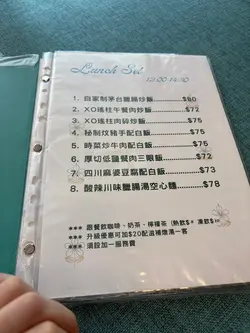 Lunch Set
12:00-14:30
1. 自家制茅台臘腸炒飯 $80
2. XO瑤柱午餐肉炒飯 $72
3. XO瑤柱肉碎炒飯 $75
4. 秘制炆豬手配白飯 $75
5. 時菜炒牛肉配白飯 $75
6. 厚切低鹽餐肉三眼飯 $72
7. 四川麻婆豆腐配白飯 $73
8. 酸辣川味臘腸湯空心麵 $78
*** 跟餐飲咖啡、奶茶、檸檬茶 (熱飲$* 凍飲$**
*** 升級優惠可加$20配滋補燉湯一客
*** 須設加一服務費